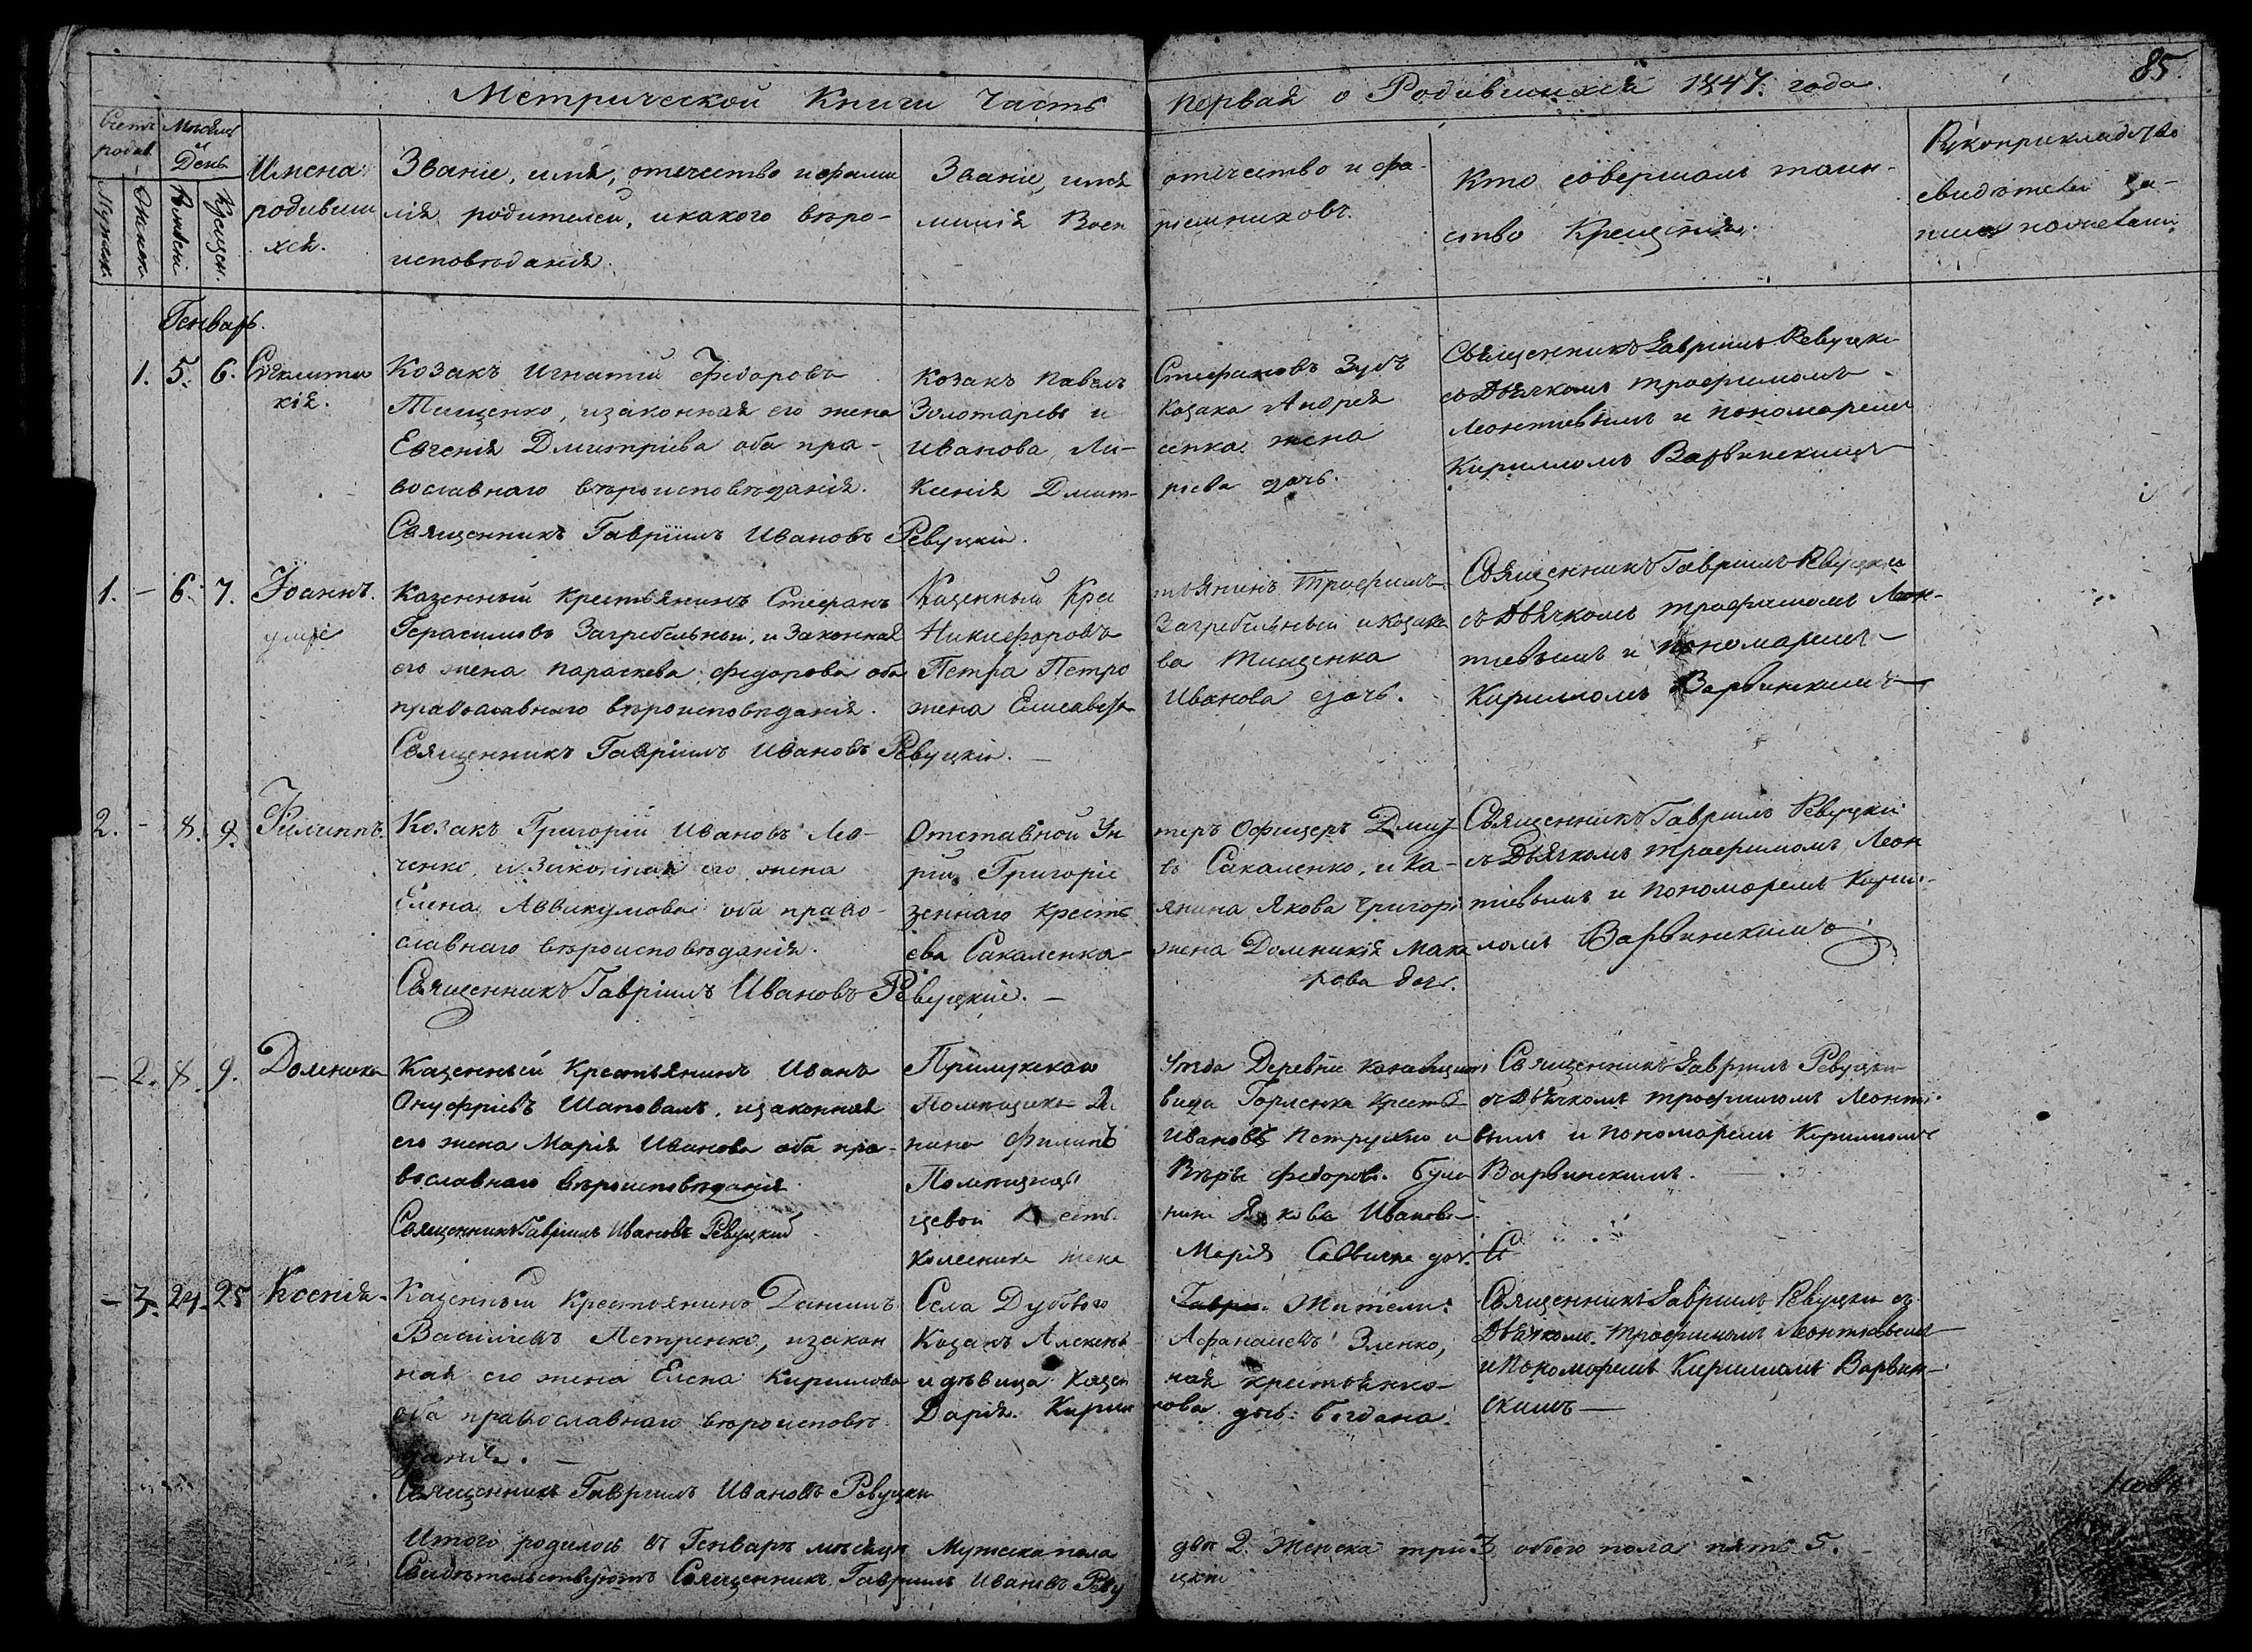 85.
Метрической Книги Часть первая о Родившихся 1847. года.
Счетъ родив.
Мужск.
Женск.
Месяцъ и День
Рожденія
Крещен.
Имена
родивши
хся.
Званіе, имя, отечество и фами
лія родителей, и какого веро-
исповѣданія.
Званіе, имя отечество и фа-
милія Восприемниковъ.
Кто совершалъ таин-
ство Крещенія.
Рукоприкладство
свидѣтелей за-
писи по желанію
Генварь.
1. 5. 6. Сигклити
кія.
Козакъ Игнатій Федоровъ
Тищенко, и законная его жена
Евгенія Дмитріева оба пра-
вославнаго вѣроисповѣданія.
Священникъ Гавріилъ Ивановъ Ревуцкій.
Козакъ Павелъ Стефановъ Зубъ
Золотаревъ и Козака Андрея
Иванова Ли-сенка жена
Ксенія Дмит-ріева дочь.
Священникъ Гавріилъ Ревуцкі
съ Дьячкомъ Трофимомъ
Леонтіевымъ и пономаремъ
Кирилломъ Варвинскимъ
1. – 6. 7. Іоаннъ.
умре
Казенный Крестьянинъ Стефанъ
Герасимовъ Загребельный, и Законная
его жена Параскева Федорова оба
православнаго вѣроисповѣданія.
Священникъ Гавріилъ Ивановъ Ревуцкій. –
Казенный Крестьянинъ Трофимъ
Никифоровъ Загребельный и козака
Петра Петрова Тищенка
жена Елисавета Иванова дочь.
Священникъ Гавріилъ Ревуцкій
съ Дьячкомъ Трофимомъ Леон-
тіевымъ и Пономаремъ
Кирилломъ Варвинскимъ
2. – 8. 9. Филиппъ.
Козакъ Григорій Ивановъ Лев-
ченко, и Законная его жена
Елена Аввакумова оба право-
славнаго вѣроисповѣданія.
Священникъ Гавріилъ Ивановъ Ревуцкій. –
Отставной Унтеръ Офицеръ Дмит
рій Григоріевъ Сакаленко, и Ка-
зеннаго Крестьянина Якова Григорі
ева Сакаленка жена Домникія Мака
рова доч.
Священникъ Гавріилъ Ревуцкій
съ Дьячкомъ Трофимомъ Леон
тіевымъ и Пономаремъ Кирил-
ломъ Варвинскимъ
– 2. 8. 9. Домника
Казенный Крестьянинъ Иванъ
Онуфріевъ Шаповалъ, и законная
его жена Марія Иванова оба пра-
вославнаго вѣроисповѣданія.
Священникъ Гавріилъ Ивановъ Ревуцкий
Прилукскаго Уѣзда Деревни
Помѣщика Горленка Крестья
нинъ Филипъ Ивановъ Петрушко и
Помѣщицы Вѣры Федоров.
Якова Иванова
Колесника жена Марія Саввична доч.
Священникъ Гавріилъ Ревуцкій
съ Дьячкомъ Трофимомъ Леонті
вымъ и Пономаремъ Кирилломъ
Варвинскимъ.
– 3. 24. 25 Ксенія.
Казенный Крестьянинъ Даніилъ
Василіевъ Петренко, и закон
ная его жена Елена Кирилова
оба православнаго вѣроисповѣ
данія. –
Священникъ Гавріилъ Ивановъ Ревуцкій
Села Дубового Жители:
Козакъ Алексѣй Афанасіевъ Зленко,
и дѣвица Казенная крестьянка
Дарія Кирилова дочь: Богдана.
Священникъ Гавріилъ Ревуцкій съ
Дьячкомъ Трофимомъ Леонтіевымъ
и Пономаремъ Кирилломъ Варвин-
скимъ –
Итого родилось въ Генварѣ месяцѣ Мужеска пола два 2. Женска три 3 обоего пола пять 5.
Свидѣтельствуютъ Священникъ Гавріилъ Ивановъ Ревуцкій